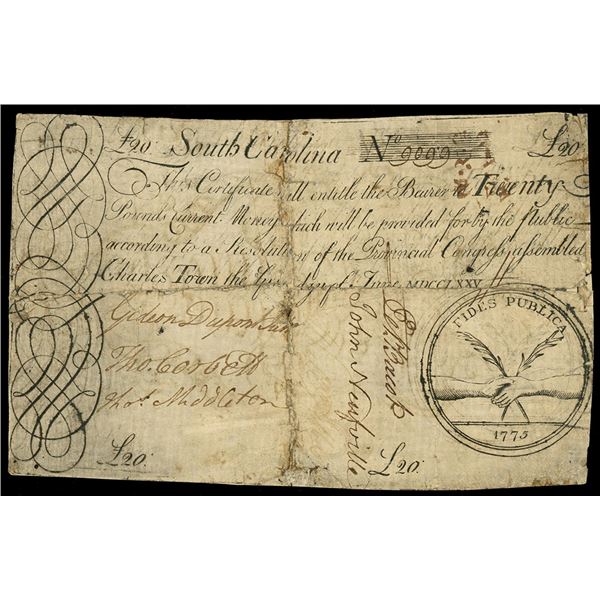 £20: South Carolina No 9099 £20
This Certificate will entitle the Bearer to Twenty
Pounds Current Money which will be provided for by the Public
according to a Resolution of the Provincial Congress assembled
Charles Town the June MDCCLXXV
Gideon Dupont Junr
Tho. Corbett
Thos. Middleton
John Neufville
FIDES PUBLICA
1775
£20:
£20: